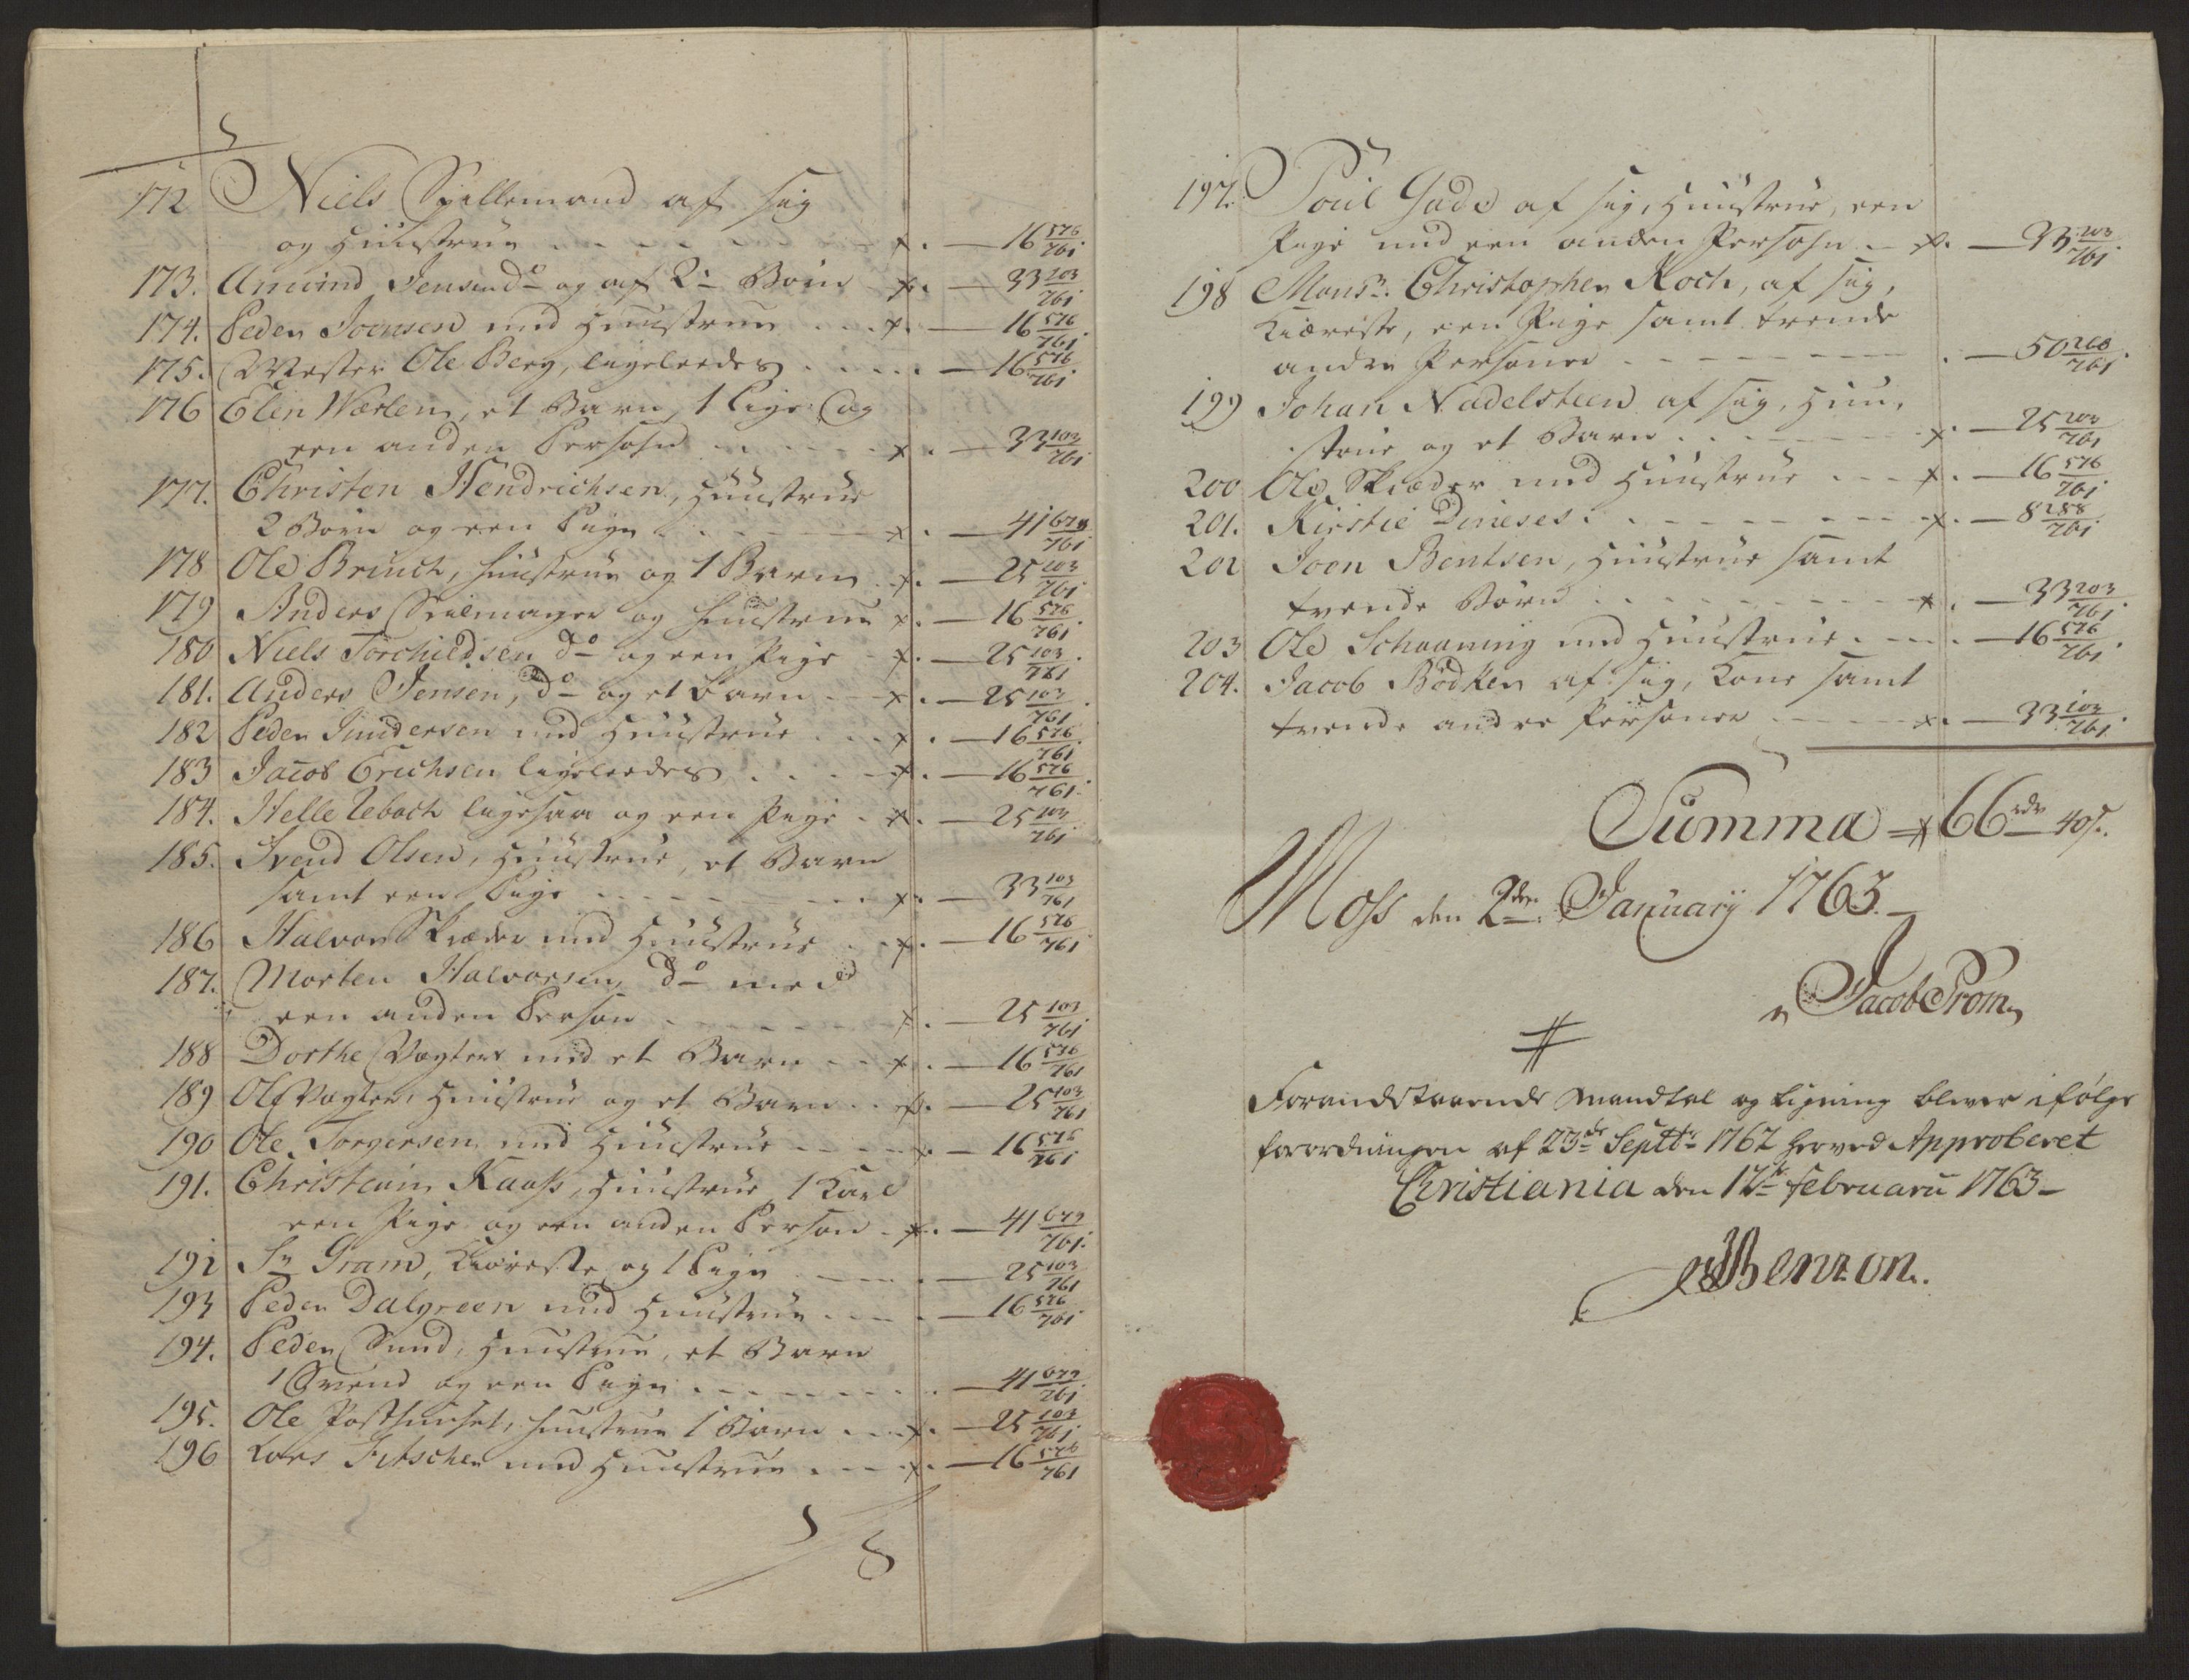 172 Niels Spillemand af sig
og Huustrue - - - x. — 16 576/761
173. Amund Jensen do og af 2de Børn x. — 33 203/761
174. Peder Joensen med Huustrue . . . x. — 16 576/761
175. Mester Ole Berg, ligeleedes . . . . . — 16 576/761
176 Elen Wærlem, et Barn, 1 Pige og
een anden Persohn . . . . x. — 33 103/761
177. Christen Hendrichsen, Huustrue
2 Børn og een Pige . . . x. — 41 679/761
178 Ole Bruch, Huustrue og 1 Barn x. — 25 103/761
179 Anders Seilmager og Huustrue x. — 16 576/761
180 Niels Torchildsen do og een Pige x. — 25 103/761
181. Anders Jensen, do og et Barn x. — 25 103/761
182 Peder Gundersen med Huustrue . . x. — 16 576/761
183 Jacob Erichsen ligeleedes . . . . x. — 16 576/761
184. Helle Lebach ligesaa og een Pige . x. — 25 103/761
185. Svend Olsen, Huustrue, et Barn
samt een Pige . . . x. — 33 103/761
186 Halvor Skræder med Huustrue . . x. — 16 576/761
187. Morten Halvorsen do med
een anden Person . . . x. — 25 103/761
188 Dorthe Vægters med et Barn . . x. — 16 576/761
189 Ole Vægter, Huustrue og et Barn . . x. — 25 103/761
190 Ole Torgersen med Huustrue . . . x — 16 576/761
191. Christian Kaass, Huustrue, 1 Karl
een Pige og een anden Person . x. — 41 679/761
192 Sr Gram, Kiæreste og 1 Pige . — 25 103/761
193 Peder Dalgreen med Huustrue . . . — 16 576/761
194. Peder Sund, Huustrue, et Barn
1 Svend og een Pige . . . — 41 679/761
195. Ole Posthuuset, Huustrue 1 Barn . . x. — 25 103/761
196 Lars Fitscher med Huustrue . . . x. — 16 576/761
197. Poul Gade af sig, Huustrue, een
Pige med een anden Persohn — x. — 33 203/761
198 Monsr. Christopher Koch, af sig,
Kiæreste, een Pige samt trende
andre Personer - - - . — 50 206/761
199 Johan Nadelsteen af sig, Huu-
strue og et Barn . . . x. — 25 203/761
200 Ole Skræder med Huustrue . . . x. — 16 576/761
201. Kirstie Dineses . . . x. — 8 288/761
202 Joen Bentsen, Huustrue samt
tvende Børn . . . x. — 33 203/761
203 Ole Schaaning med Huustrue . . . — 16 576/761
204. Jacob Bødker af sig, Kone samt
tvende andre Personer . . . x. — 33 103/761
Summa x 66 rdr 40 s.
Moss den 2den January 1763.
Jacob Prom
Forandstaaende Mandtal og Ligning bliver ifølge
forordningen af 23de Septbr 1762 herved Approberet
Christiania den 17de februarii 1763 -
Benzon.